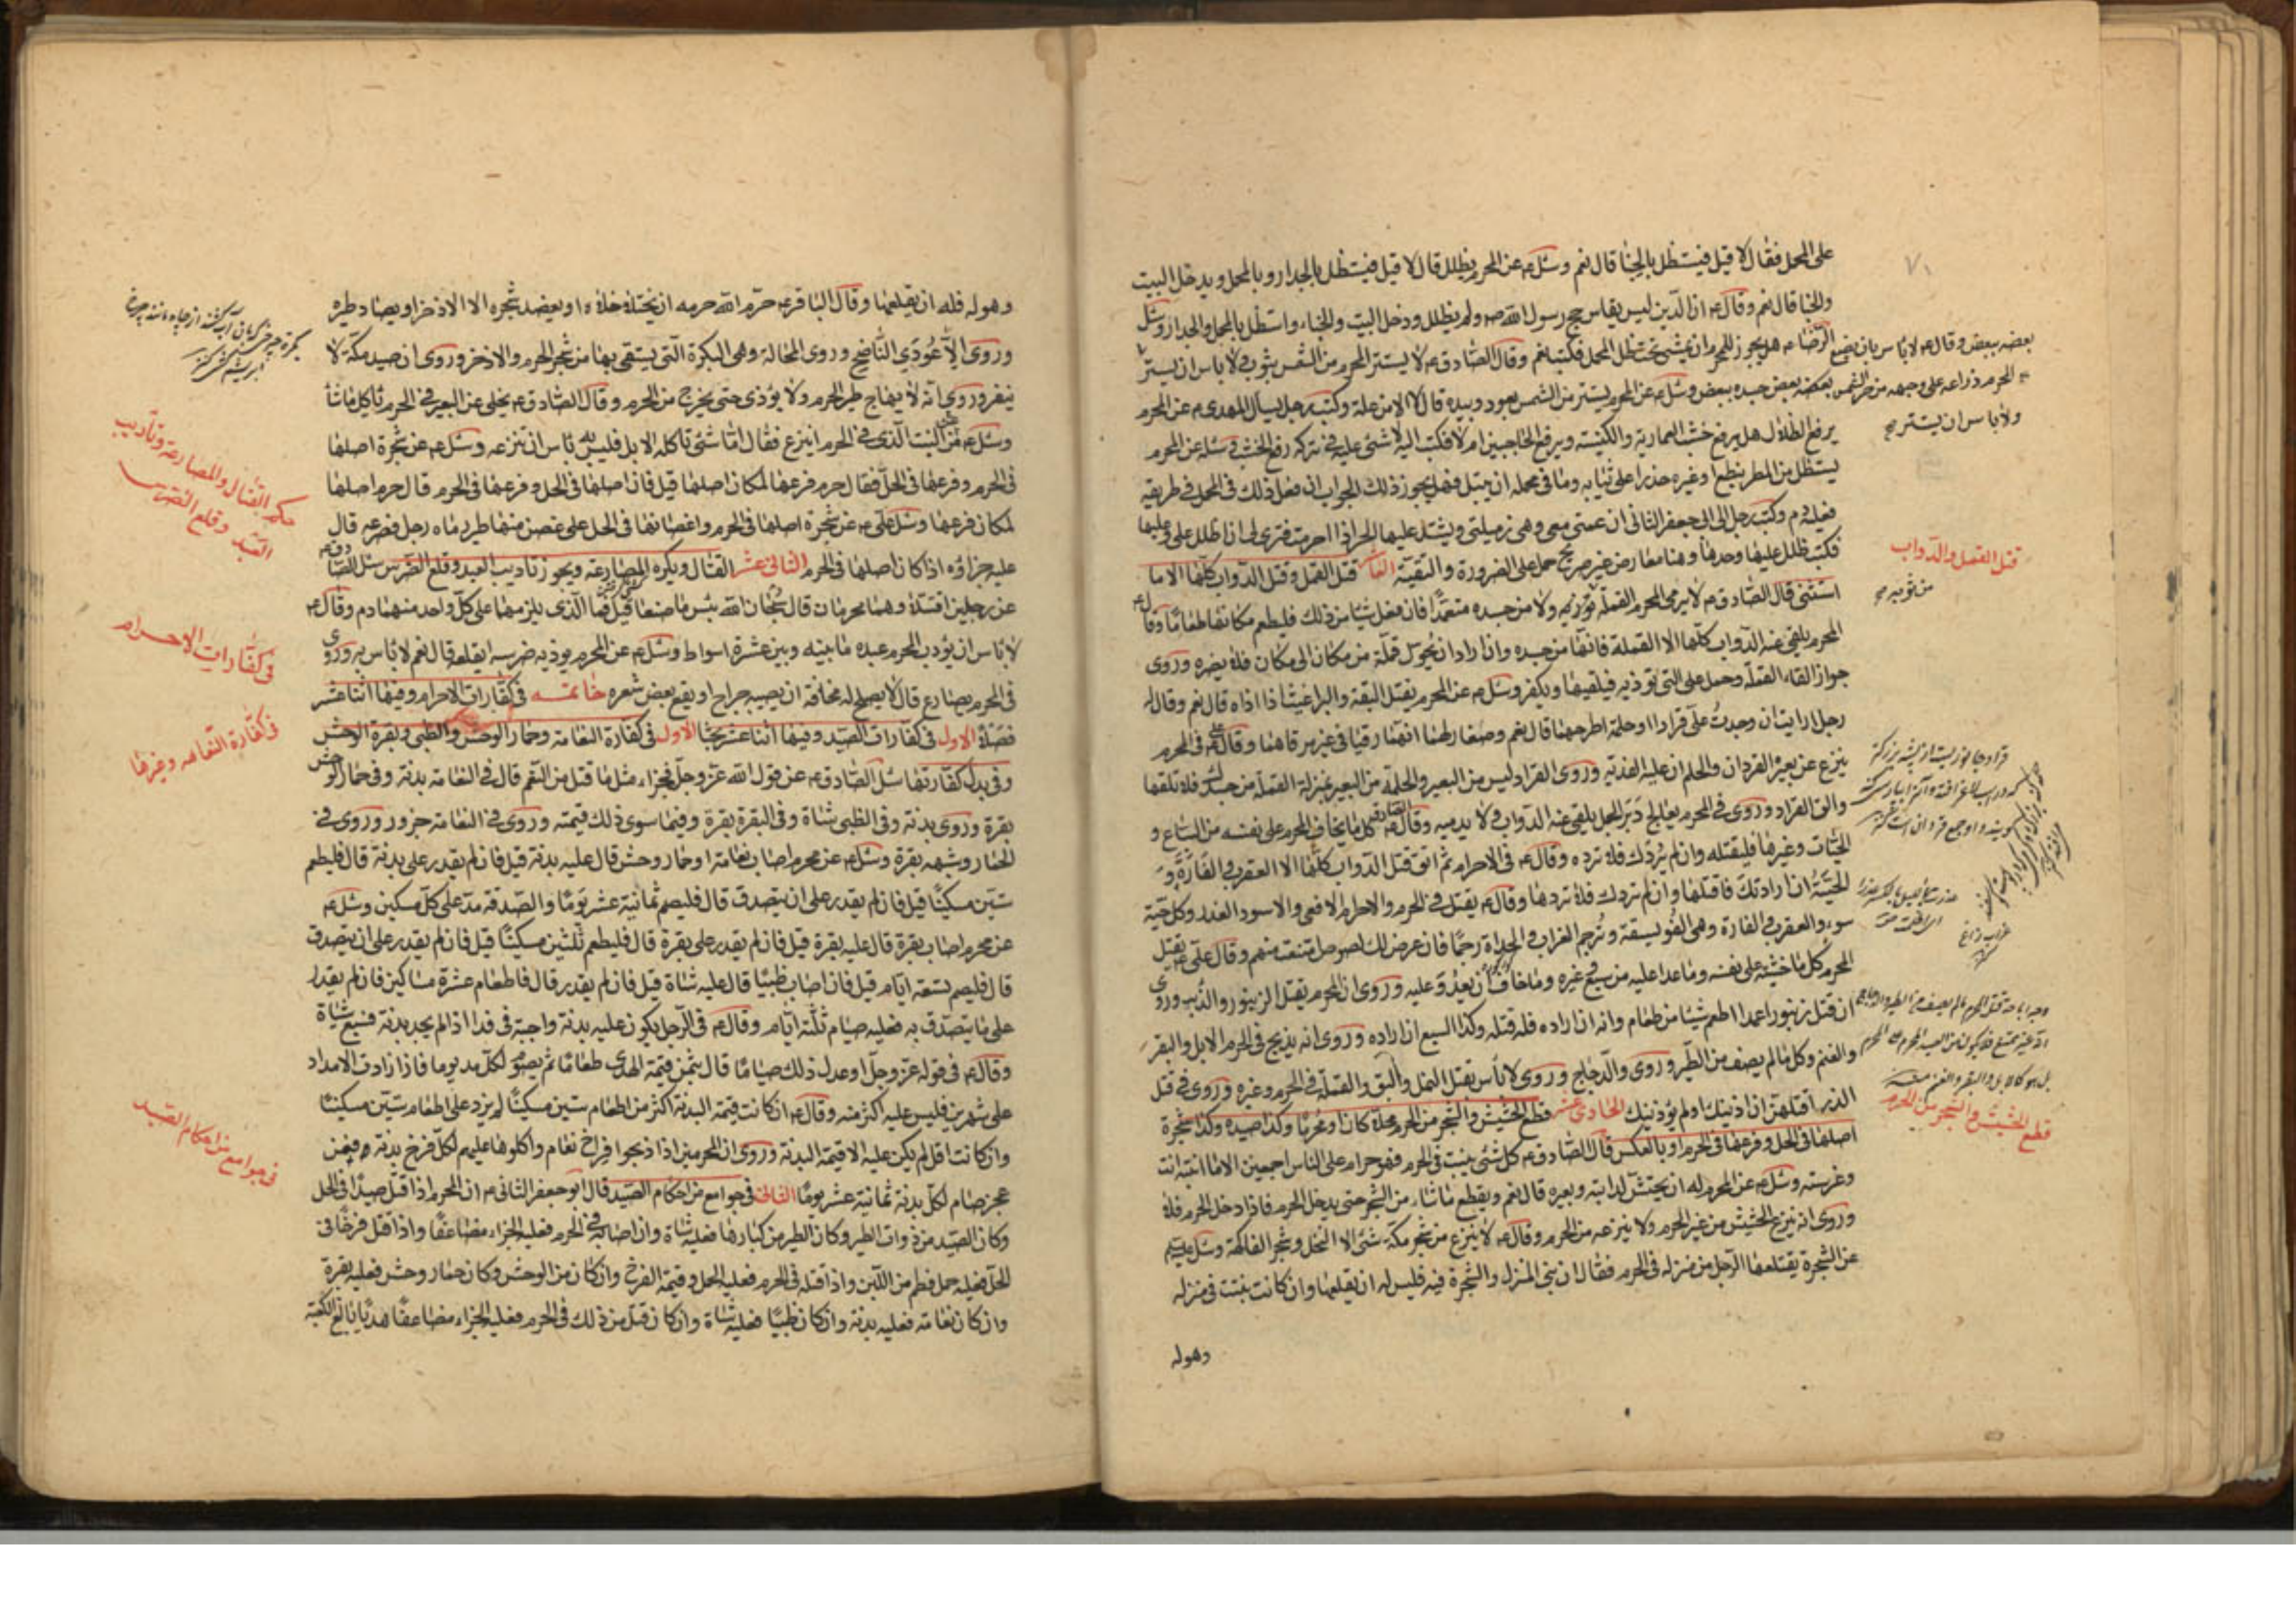 على المحمل فقال لا قيل فيستظل بالخبا قال نعم وسئل ع عن المحرم يظلل قال لا قيل فيستظل بالجدار وبالمحمل ويدخل البيت
والخبا قال نعم وقال ع ان الدين ليس يقاس حج رسول الله ص ولم يظلل ودخل البيت والخباء واستظل بالمحمل والجدار وسئل
الرضا ع هل يجوز للمحرم ان يمشي تحت ظل المحمل فكتب نعم وقال الصادق ع لا يستتر المحرم من الشمس بثوب ولا باس ان يستتر
بعضه ببعض وقال ع لا باس بان يضع
المحرم ذراعه على وجهه من حر الشمس
ولا باس ان يستتر صح
بعضه بعض جسده ببعض وسئل ع عن المحرم يستتر من الشمس بعود وبيده قال لا الا من علة وكتب رجل يسأل المهدي ع عن المحرم
يرفع الظلال هل يرفع خشب العمارية والكنيسة ويرفع الجناحين ام لا فكتب اليه لا شئ عليه في تركه رفع الخشب وسئله عن المحرم
يستظل من المطر بنطع او غيره حذرا على ثيابه وما في محمله ان يبتل فهل يجوز ذلك الجواب اذا فعل ذلك في المحمل في طريقه
فعليه دم وكتب رجل الى ابي جعفر الثاني ان عمتي معي وهي زميلتي ويشتد عليها الحر اذا احرمت فترى لي ان اظلل علي وعليها
فكتب ظلل عليها وحدها وهنا معارض غير صريح حمل على الضرورة والتقية العاشر قتل القمل وقتل الدواب كلها الا ما
قتل القمل والدواب
استثنى قال الصادق ع لا يرمي المحرم القملة من ثوبه ولا من جسده متعمدا فان فعل شيئا من ذلك فليطعم مكانها طعاما وقال ع
المحرم يلقي عنه الدواب كلها الا القملة فانها من جسده وان اراد ان يحول قملة من مكان الى مكان فلا يضره وروي
جواز القاء القملة وحمل على التي تؤذيه فيلقيها ويكفر وسئل ع عن المحرم يقتل البقة والبراغيث اذا اذاه قال نعم وقال له
رجل ارايت ان وجدت علي قرادا او حلمة اطرحهما قال نعم وصغار لهما انهما رقيا في غير مرقاهما وقال ع في المحرم
ينزع عن بعيره القردان والحلم ان عليه الفدية وروي القراد ليس من البعير والحلمة من البعير بمنزلة القملة من جسدك فلا تلقها
والق القراد وروي في المحرم يعالج دبر الجمل يلقي عنه الدواب ولا يدميه وقال الصادق ع كل ما يخاف المحرم على نفسه من السباع و
الحيات وغيرها فليقتله وان لم يردك فلا ترده وقال ع في الاحرام ثم اتق قتل الدواب كلها الا العقرب والفارة و
الحية ان ارادتك فاقتلها وان لم تردك فلا تردها وقال ع يقتل في الحرم والاحرام الافعى والاسود الغدر وكل حية
سوء والعقرب والفارة وهي الفويسقة وترجم الغراب والحداة رجما فان عرض لك لصوص امتنعت منهم وقال علي ع يقتل
المحرم كل ما خشيه على نفسه وما عدا عليه من سبع وغيره وما خاف ان يعدو عليه وروي ان المحرم يقتل الزنبور والذئب وروي
ان قتل زنبورا عمدا اطعم شيئا من طعام وانه ان اراده فله قتله وكذا السبع ان اراده وروي انه يذبح في الحرم الابل والبقر
والغنم وكل ما لم يصف من الطير وروي والدجاج وروي لا باس بقتل النمل والبق والقملة في الحرم وغيره وروي في قتل
الذر اقتلهن ان اذينك او لم يؤذينك الحادي عشر قطع الحشيش والشجر من الحرم محلا كان او محرما وكذا صيده وكذا شجرة
قطع الحشيش والشجر من الحرم
اصلها في الحل وفرعها في الحرم او بالعكس قال الصادق ع كل شئ ينبت في الحرم فهو حرام على الناس اجمعين الا ما انبته انت
وغرسته وسئل ع عن المحرم له ان يحتش لدابته وبعيره قال نعم ويقطع ما شاء من الشجر حتى يدخل الحرم فاذا دخل الحرم فلا
وروي انه ينزع الحشيش من غير الحرم ولا ينزعه من الحرم وقال ع لا ينزع من شجر مكة شئ الا النخل وشجر الفاكهة وسئل ع
عن الشجرة يقتلعها الرجل من منزله في الحرم فقال ان بنى المنزل والشجرة فيه فليس له ان يقلعها وان كانت نبتت في منزله
وهو له
وهو له فله ان يقلعها وقال الباقر ع حرم الله حرمه ان يختلى خلاه او يعضد شجره الا الاذخر او يصاد طيره
وروي الا عودي الناضح وروي المحالة وهي البكرة التي يستقى بها من شجر الحرم والاذخر وروي ان صيد مكة لا
ينفر وروي انه لا يهاج طير الحرم ولا يؤذى حتى يخرج من الحرم وقال الصادق ع يخلى عن البعير في الحرم ياكل ما شاء
وسئل ع عن النبت الذي في الحرم اينزع فقال اما شئ تاكله الابل فليس به باس ان تنزعه وسئل ع عن شجرة اصلها
في الحرم وفرعها في الحل فقال حرم فرعها لمكان اصلها قيل فان اصلها في الحل وفرعها في الحرم قال حرم اصلها
حكم القتال والمصارعة وتأديب
العبد وقلع الضرس
لمكان فرعها وسئل علي ع عن شجرة اصلها في الحرم واغصانها في الحل على غصن منها طير رماه رجل فصرعه قال
عليه جزاؤه اذا كان اصلها في الحرم الثاني عشر القتال ويكره المصارعة ويجوز تاديب العبد وقلع الضرس سئل الصادق ع
عن رجلين اقتتلا وهما محرمان قال سبحان الله بئس ما صنعا قيل فما الذي يلزمهما على كل واحد منهما دم وقال ع
لا باس ان يؤدب المحرم عبده ما بينه وبين عشرة اسواط وسئل ع عن المحرم يؤذيه ضرسه ايقلعه قال نعم لا باس به وروي
في كفارات الاحرام
في المحرم يصارع قال لا يصلح له مخافة ان يصيبه جراح او يقع بعض شعره خاتمة في كفارات الاحرام وفيها اثنا عشر
فصلا الاول في كفارات الصيد وفيها اثنا عشر بحثا الاول في كفارة النعامة وحمار الوحش والظبي وبقرة الوحش
في كفارة النعامه وغيرها
وفي بدل كفارتها سئل الصادق ع عن قول الله عز وجل فجزاء مثل ما قتل من النعم قال في النعامة بدنة وفي حمار الوحش
بقرة وروي بدنة وفي الظبي شاة وفي البقرة بقرة وفيما سوى ذلك قيمته وروي في النعامة جزور وروي في
الحمار وشبهه بقرة وسئل ع عن محرم اصاب نعامة او حمار وحش قال عليه بدنة قيل فان لم يقدر على بدنة قال فليطعم
ستين مسكينا قيل فان لم يقدر على ان يتصدق قال فليصم ثمانية عشر يوما والصدقة مد على كل مسكين وسئل ع
عن محرم اصاب بقرة قال عليه بقرة قيل فان لم يقدر على بقرة قال فليطعم ثلثين مسكينا قيل فان لم يقدر على ان يتصدق
قال فليصم تسعة ايام قيل فان اصاب ظبيا قال عليه شاة قيل فان لم يقدر قال فاطعام عشرة مساكين فان لم يقدر
على ما يتصدق به فعليه صيام ثلثة ايام وقال ع في الرجل يكون عليه بدنة واجبة في فداء اذا لم يجد بدنة فسبع شياة
وقال ع في قوله عز وجل او عدل ذلك صياما قال يثمن قيمة الهدي طعاما ثم يصوم لكل مد يوما فاذا زادت الامداد
على شهرين فليس عليه اكثر منه وقال ع ان كانت قيمة البدنة اكثر من اطعام ستين مسكينا لم يزد على اطعام ستين مسكينا
وان كانت اقل لم يكن عليه الا قيمة البدنة وروي ان المحرمين اذا ذبحوا فراخ نعام واكلوها عليهم لكل فرخ بدنة فمن
عجز صام لكل بدنة ثمانية عشر يوما الثاني في جوامع من احكام الصيد قال ابو جعفر الثاني ع ان المحرم اذا قتل صيدا في الحل
في جوامع من احكام الصيد
وكان الصيد من ذوات الطير وكان الطير من كبارها فعليه شاة وان اصابه في الحرم فعليه الجزاء مضاعفا واذا قتل فرخا في
الحل فعليه حمل فطم من اللبن واذا قتله في الحرم فعليه الحمل وقيمة الفرخ وان كان من الوحش وكان حمار وحش فعليه بقرة
وان كان نعامة فعليه بدنة وان كان ظبيا فعليه شاة وان كان قتل من ذلك في الحرم فعليه الجزاء مضاعفا هديا بالغ الكعبة